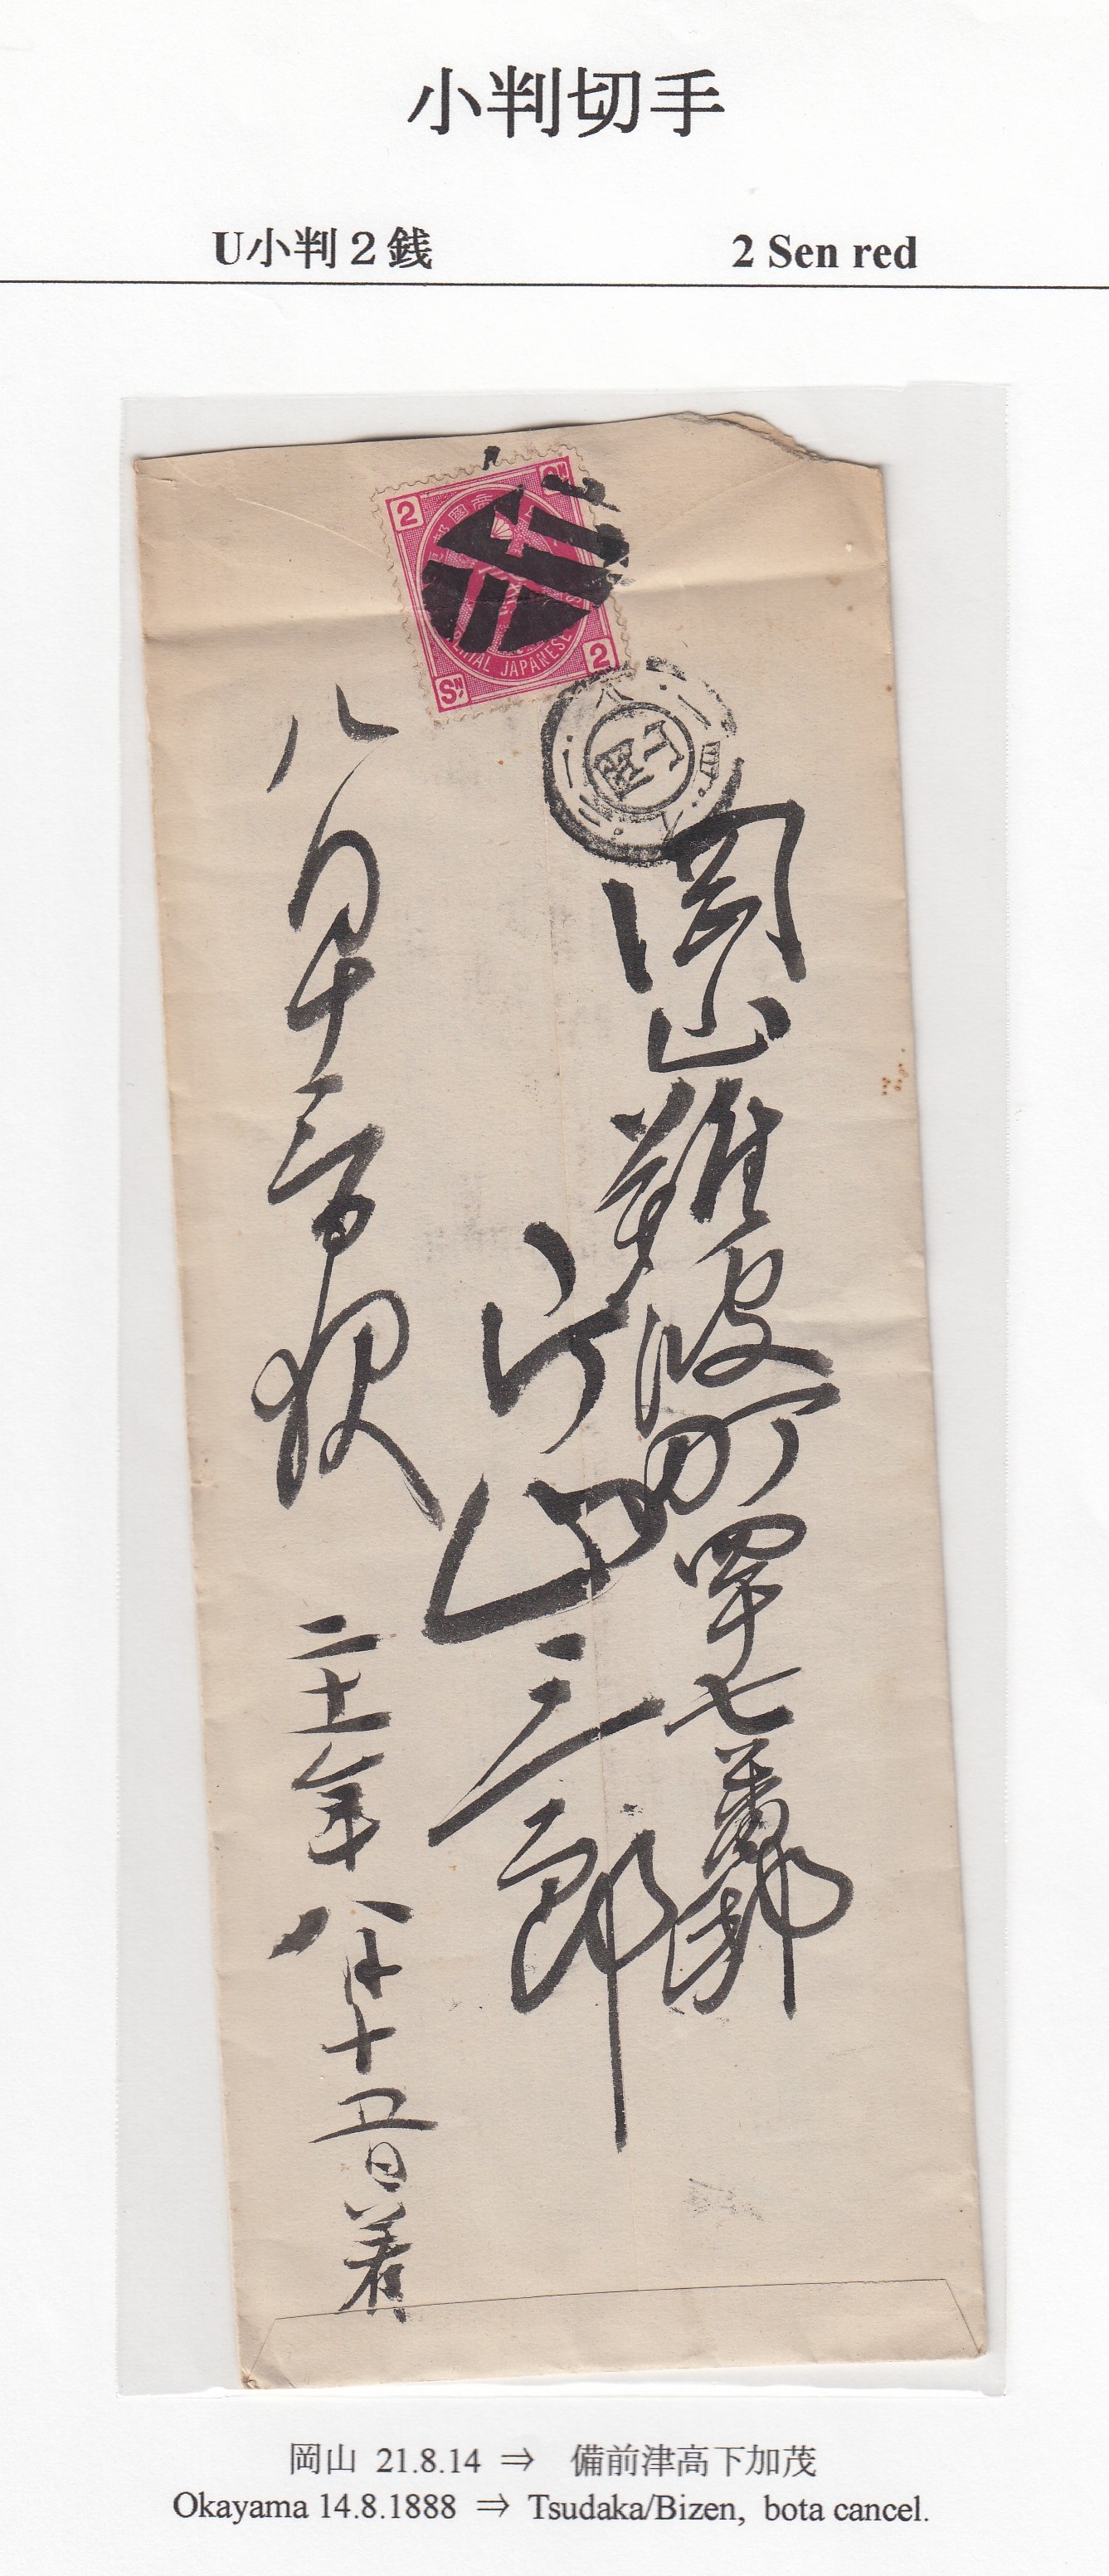 小判切手
U小判２銭
2 Sen red
2
2
SN
JAPANESE
岡山難波町四十七番邸
片山三郎
八月十三日夜
二十一年
八月十五日着
岡山 21.8.14 ⇒ 備前津高下加茂
Okayama 14.8.1888 ⇒ Tsudaka/Bizen, bota cancel.